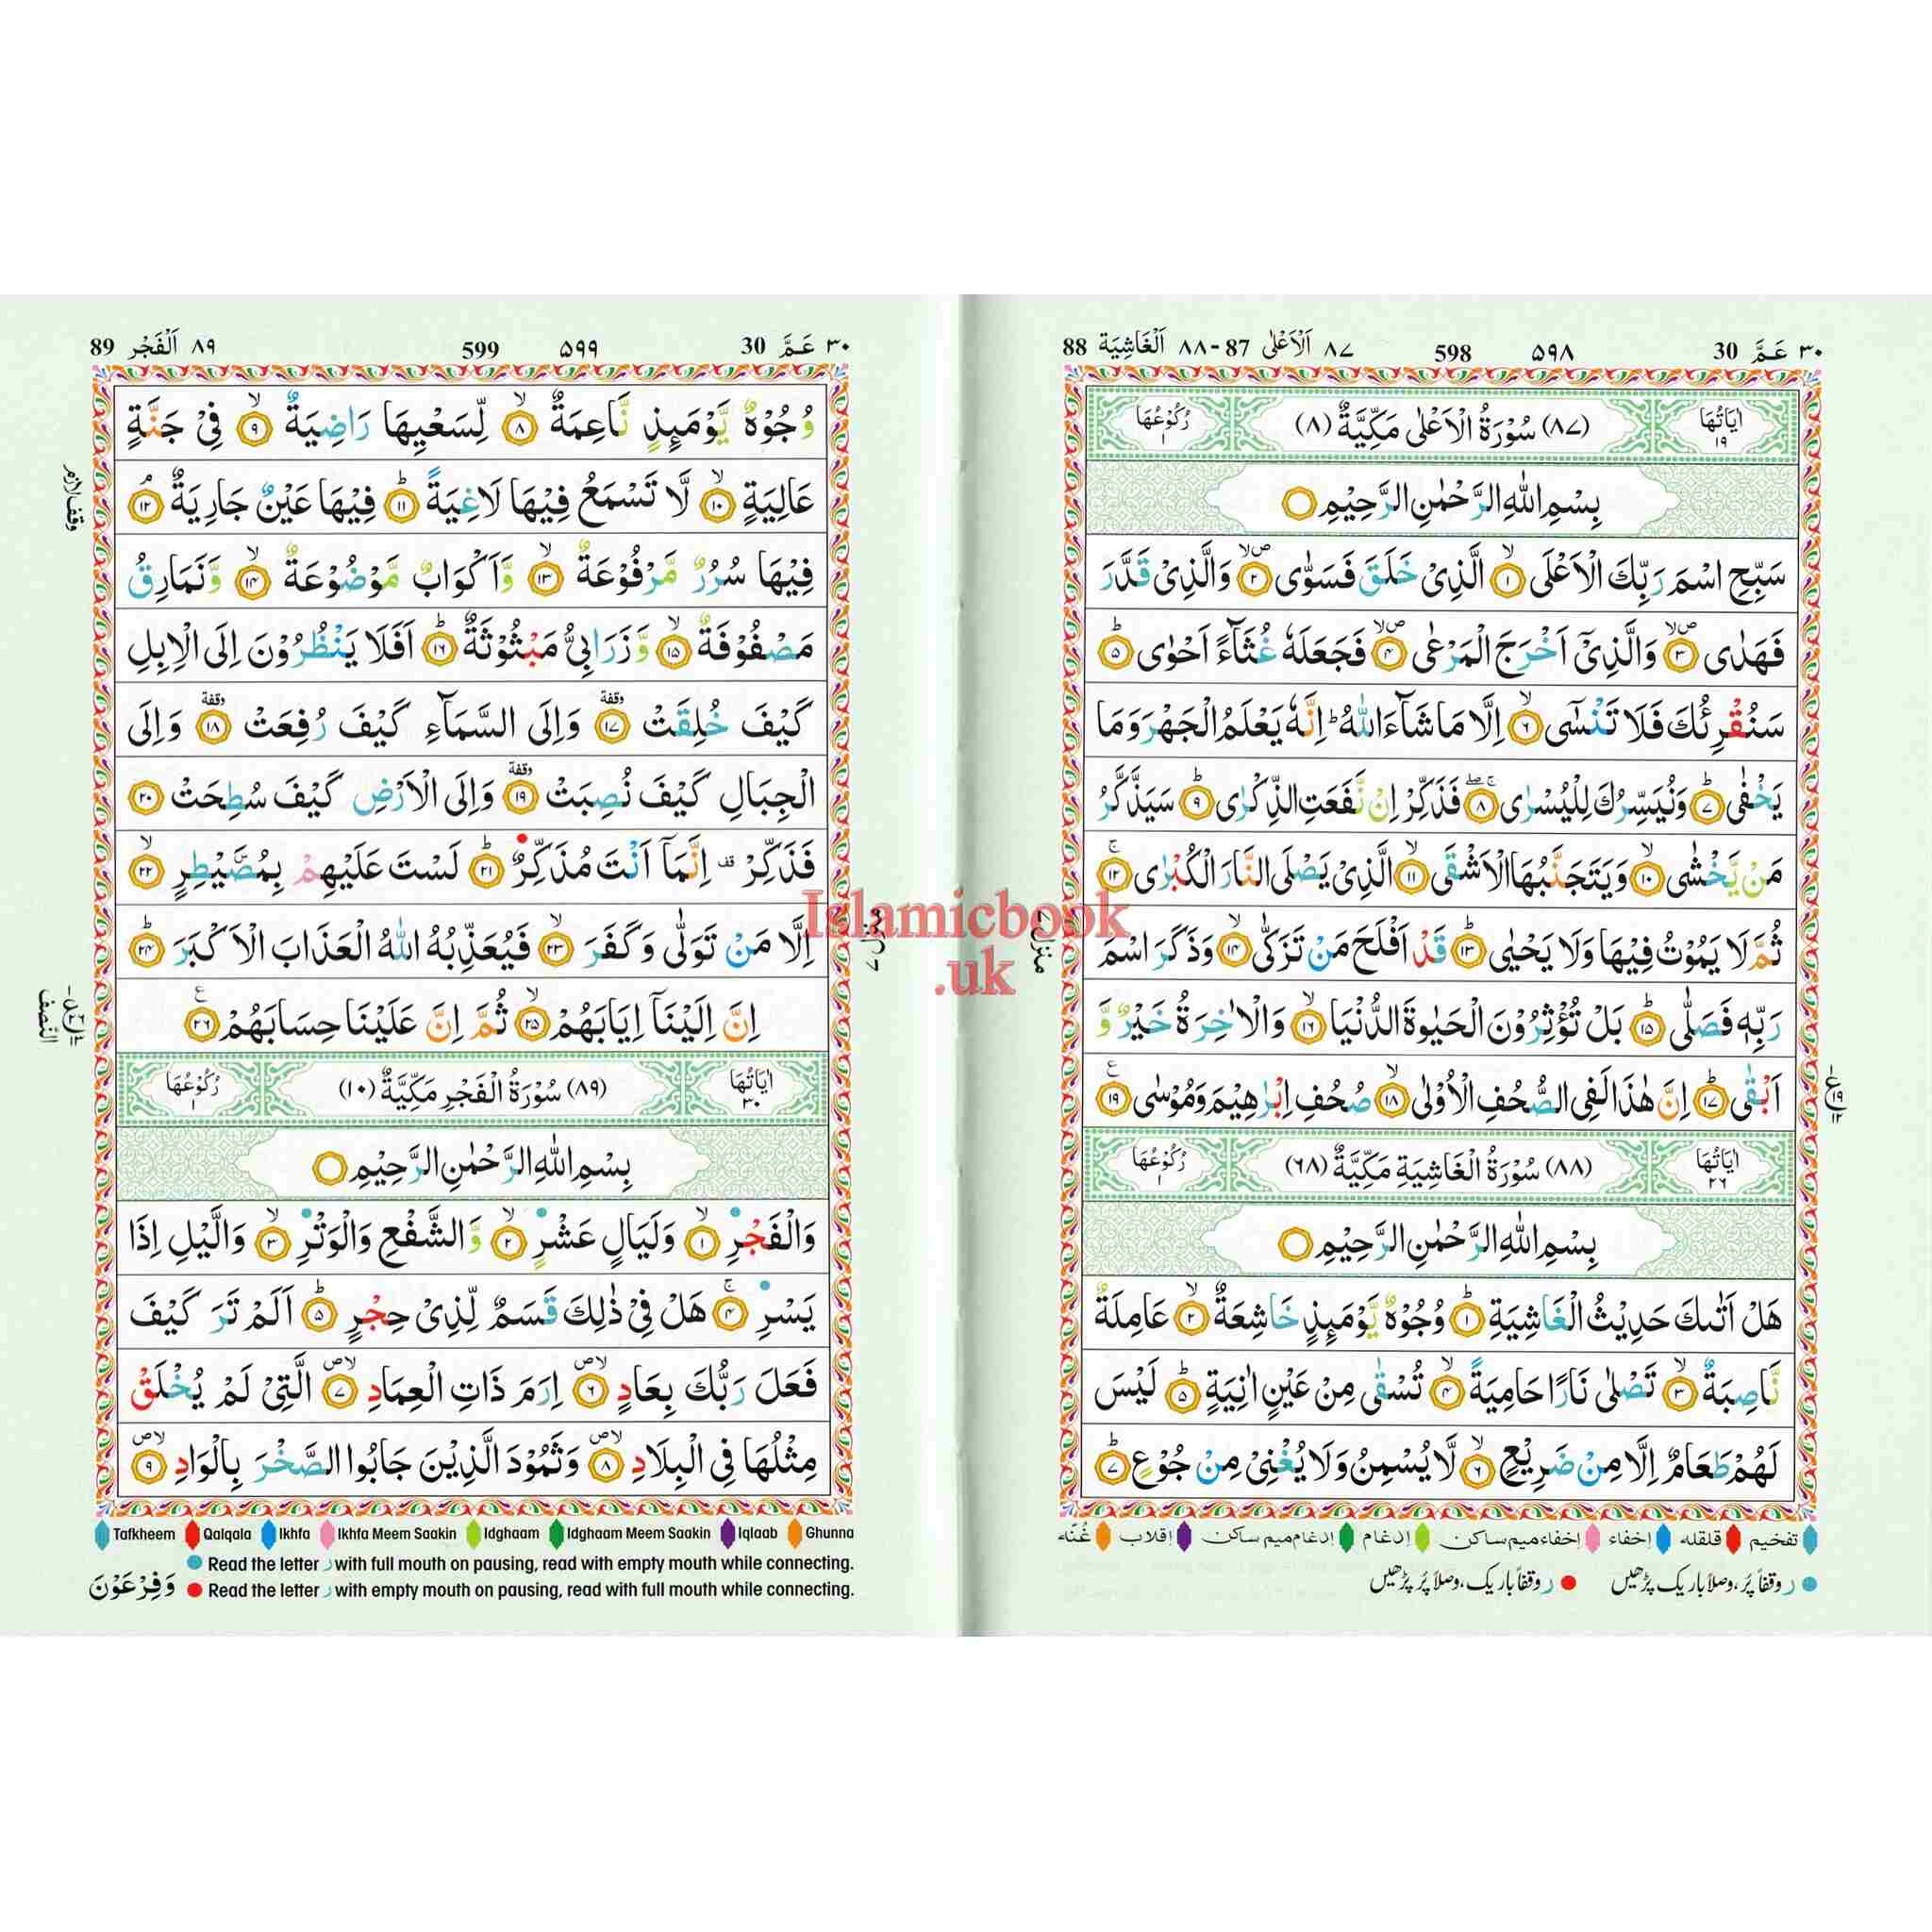 ٣٠ عَمَّ 30 ٥٩٨ 598 ٨٧ اَلْاَعْلٰى 87 - ٨٨ اَلْغَاشِيَة 88
اٰيَاتُهَا ١٩ (٨٧) سُوْرَةُ الْاَعْلٰى مَكِّيَّةٌ (٨) رُكُوْعُهَا ١
بِسْمِ اللّٰهِ الرَّحْمٰنِ الرَّحِيْمِ
سَبِّحِ اسْمَ رَبِّكَ الْاَعْلَى ۙ﴿١﴾ الَّذِىْ خَلَقَ فَسَوّٰى ۪ۙ﴿٢﴾ وَالَّذِىْ قَدَّرَ
فَهَدٰى ۪ۙ﴿٣﴾ وَالَّذِىْٓ اَخْرَجَ الْمَرْعٰى ۪ۙ﴿٤﴾ فَجَعَلَهٗ غُثَآءً اَحْوٰى ؕ﴿٥﴾
سَنُقْرِئُكَ فَلَا تَنْسٰٓى ۙ﴿٦﴾ اِلَّا مَا شَآءَ اللّٰهُ ؕ اِنَّهٗ يَعْلَمُ الْجَهْرَ وَمَا
يَخْفٰى ؕ﴿٧﴾ وَنُيَسِّرُكَ لِلْيُسْرٰى ۚۖ﴿٨﴾ فَذَكِّرْ اِنْ نَّفَعَتِ الذِّكْرٰى ؕ﴿٩﴾ سَيَذَّكَّرُ
مَنْ يَّخْشٰى ۙ﴿١٠﴾ وَيَتَجَنَّبُهَا الْاَشْقَى ۙ﴿١١﴾ الَّذِىْ يَصْلَى النَّارَ الْكُبْرٰى ۚ﴿١٢﴾
ثُمَّ لَا يَمُوْتُ فِيْهَا وَلَا يَحْيٰى ؕ﴿١٣﴾ قَدْ اَفْلَحَ مَنْ تَزَكّٰى ۙ﴿١٤﴾ وَذَكَرَ اسْمَ
رَبِّهٖ فَصَلّٰى ؕ﴿١٥﴾ بَلْ تُؤْثِرُوْنَ الْحَيٰوةَ الدُّنْيَا ۖ﴿١٦﴾ وَالْاٰخِرَةُ خَيْرٌ وَّ
اَبْقٰى ؕ﴿١٧﴾ اِنَّ هٰذَا لَفِى الصُّحُفِ الْاُوْلٰى ۙ﴿١٨﴾ صُحُفِ اِبْرٰهِيْمَ وَمُوْسٰى ﴿١٩﴾
اٰيَاتُهَا ٢٦ (٨٨) سُوْرَةُ الْغَاشِيَةِ مَكِّيَّةٌ (٦٨) رُكُوْعُهَا ١
بِسْمِ اللّٰهِ الرَّحْمٰنِ الرَّحِيْمِ
هَلْ اَتٰىكَ حَدِيْثُ الْغَاشِيَةِ ؕ﴿١﴾ وُجُوْهٌ يَّوْمَئِذٍ خَاشِعَةٌ ۙ﴿٢﴾ عَامِلَةٌ
نَّاصِبَةٌ ۙ﴿٣﴾ تَصْلٰى نَارًا حَامِيَةً ۙ﴿٤﴾ تُسْقٰى مِنْ عَيْنٍ اٰنِيَةٍ ؕ﴿٥﴾ لَيْسَ
لَهُمْ طَعَامٌ اِلَّا مِنْ ضَرِيْعٍ ۙ﴿٦﴾ لَّا يُسْمِنُ وَلَا يُغْنِىْ مِنْ جُوْعٍ ؕ﴿٧﴾
تفخيم قلقله إخفاء إخفاء ميم ساكن إدغام إدغام ميم ساكن إقلاب غُنّه
ر وقفاً پُر، وصلاً باریک پڑھیں ر وقفاً باریک، وصلاً پُر پڑھیں
منزل ٧
٣٠ عَمَّ 30 ٥٩٩ 599 ٨٩ اَلْفَجْر 89
وُجُوْهٌ يَّوْمَئِذٍ نَّاعِمَةٌ ۙ﴿٨﴾ لِّسَعْيِهَا رَاضِيَةٌ ۙ﴿٩﴾ فِىْ جَنَّةٍ
عَالِيَةٍ ۙ﴿١٠﴾ لَّا تَسْمَعُ فِيْهَا لَاغِيَةً ؕ﴿١١﴾ فِيْهَا عَيْنٌ جَارِيَةٌ ۘ﴿١٢﴾
وقف لازم
فِيْهَا سُرُرٌ مَّرْفُوْعَةٌ ۙ﴿١٣﴾ وَّاَكْوَابٌ مَّوْضُوْعَةٌ ۙ﴿١٤﴾ وَّنَمَارِقُ
مَصْفُوْفَةٌ ۙ﴿١٥﴾ وَّزَرَابِىُّ مَبْثُوْثَةٌ ؕ﴿١٦﴾ اَفَلَا يَنْظُرُوْنَ اِلَى الْاِبِلِ
كَيْفَ خُلِقَتْ وقفة ﴿١٧﴾ وَاِلَى السَّمَآءِ كَيْفَ رُفِعَتْ وقفة ﴿١٨﴾ وَاِلَى
الْجِبَالِ كَيْفَ نُصِبَتْ وقفة ﴿١٩﴾ وَاِلَى الْاَرْضِ كَيْفَ سُطِحَتْ ﴿٢٠﴾
فَذَكِّرْ قف اِنَّمَآ اَنْتَ مُذَكِّرٌ ؕ﴿٢١﴾ لَسْتَ عَلَيْهِمْ بِمُصَۜيْطِرٍ ۙ﴿٢٢﴾
اِلَّا مَنْ تَوَلّٰى وَكَفَرَ ۙ﴿٢٣﴾ فَيُعَذِّبُهُ اللّٰهُ الْعَذَابَ الْاَكْبَرَ ؕ﴿٢٤﴾
اِنَّ اِلَيْنَآ اِيَابَهُمْ ۙ﴿٢٥﴾ ثُمَّ اِنَّ عَلَيْنَا حِسَابَهُمْ ﴿٢٦﴾
النّصف
اٰيَاتُهَا ٣٠ (٨٩) سُوْرَةُ الْفَجْرِ مَكِّيَّةٌ (١٠) رُكُوْعُهَا ١
بِسْمِ اللّٰهِ الرَّحْمٰنِ الرَّحِيْمِ
وَالْفَجْرِ ۙ﴿١﴾ وَلَيَالٍ عَشْرٍ ۙ﴿٢﴾ وَّالشَّفْعِ وَالْوَتْرِ ۙ﴿٣﴾ وَالَّيْلِ اِذَا
يَسْرِ ۚ﴿٤﴾ هَلْ فِىْ ذٰلِكَ قَسَمٌ لِّذِىْ حِجْرٍ ؕ﴿٥﴾ اَلَمْ تَرَ كَيْفَ
فَعَلَ رَبُّكَ بِعَادٍ ۪ۙ﴿٦﴾ اِرَمَ ذَاتِ الْعِمَادِ ۪ۙ﴿٧﴾ الَّتِىْ لَمْ يُخْلَقْ
مِثْلُهَا فِى الْبِلَادِ ۪ۙ﴿٨﴾ وَثَمُوْدَ الَّذِيْنَ جَابُوا الصَّخْرَ بِالْوَادِ ۪ۙ﴿٩﴾
Tafkheem Qalqala Ikhfa Ikhfa Meem Saakin Idghaam Idghaam Meem Saakin Iqlaab Ghunna
Read the letter ر with full mouth on pausing, read with empty mouth while connecting.
Read the letter ر with empty mouth on pausing, read with full mouth while connecting.
وَفِرْعَوْنَ
Islamicbook
.uk